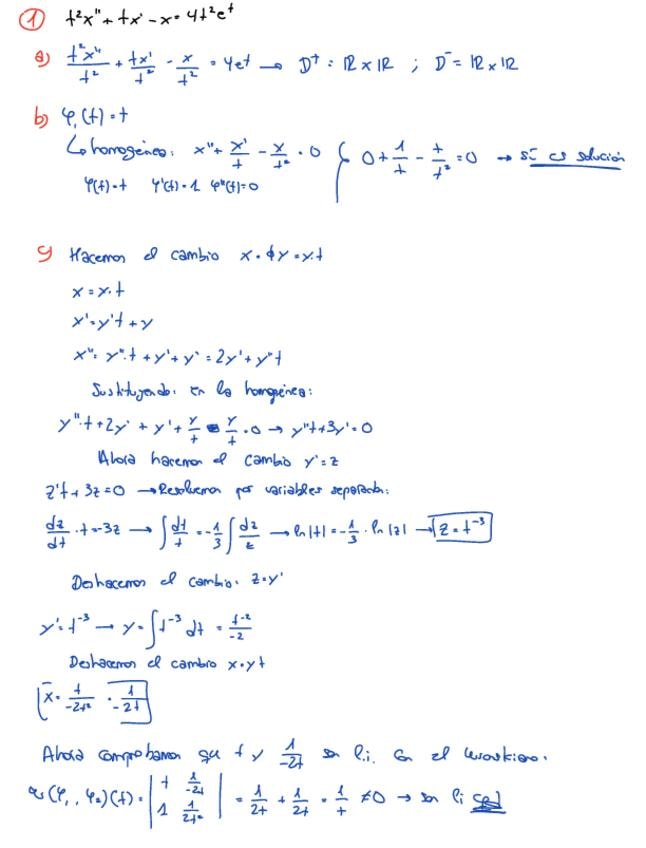 ① t²x" + tx' - x = 4t²e^t
a) t²x"/t² + tx'/t² - x/t² = 4e^t → D⁺ : ℝ x ℝ ; D⁻ = ℝ x ℝ
b) φ₁(t) = t
↳ homogénea: x" + x'/t - x/t² = 0 { 0 + 1/t - t/t² = 0 → sí es solución
φ(t) = t φ'(t) = 1 φ"(t) = 0
c) Hacemos el cambio x = ϕy = y.t
x = y.t
x' = y't + y
x" = y".t + y' + y' = 2y' + y"t
Sustituyendo: en la homogénea:
y".t + 2y' + y' + y/t - y/t = 0 → y"t + 3y' = 0
Ahora hacemos el cambio y' = z
z't + 3z = 0 → Resolvemos por variables separadas:
dz/dt · t = -3z → ∫ dt/t = -1/3 ∫ dz/z → ln|t| = -1/3 · ln|z| → z = t⁻³
Deshacemos el cambio: z = y'
y' = t⁻³ → y = ∫ t⁻³ dt = t⁻²/-2
Deshacemos el cambio x = yt
x = t/-2t² = 1/-2t
Ahora comprobamos que t y 1/-2t son l.i. con el wronskiano.
ω(φ₁, φ₂)(t) = | t 1/-2t | = 1/2t + 1/2t = 1/t ≠ 0 → son li
| 1 1/2t² |